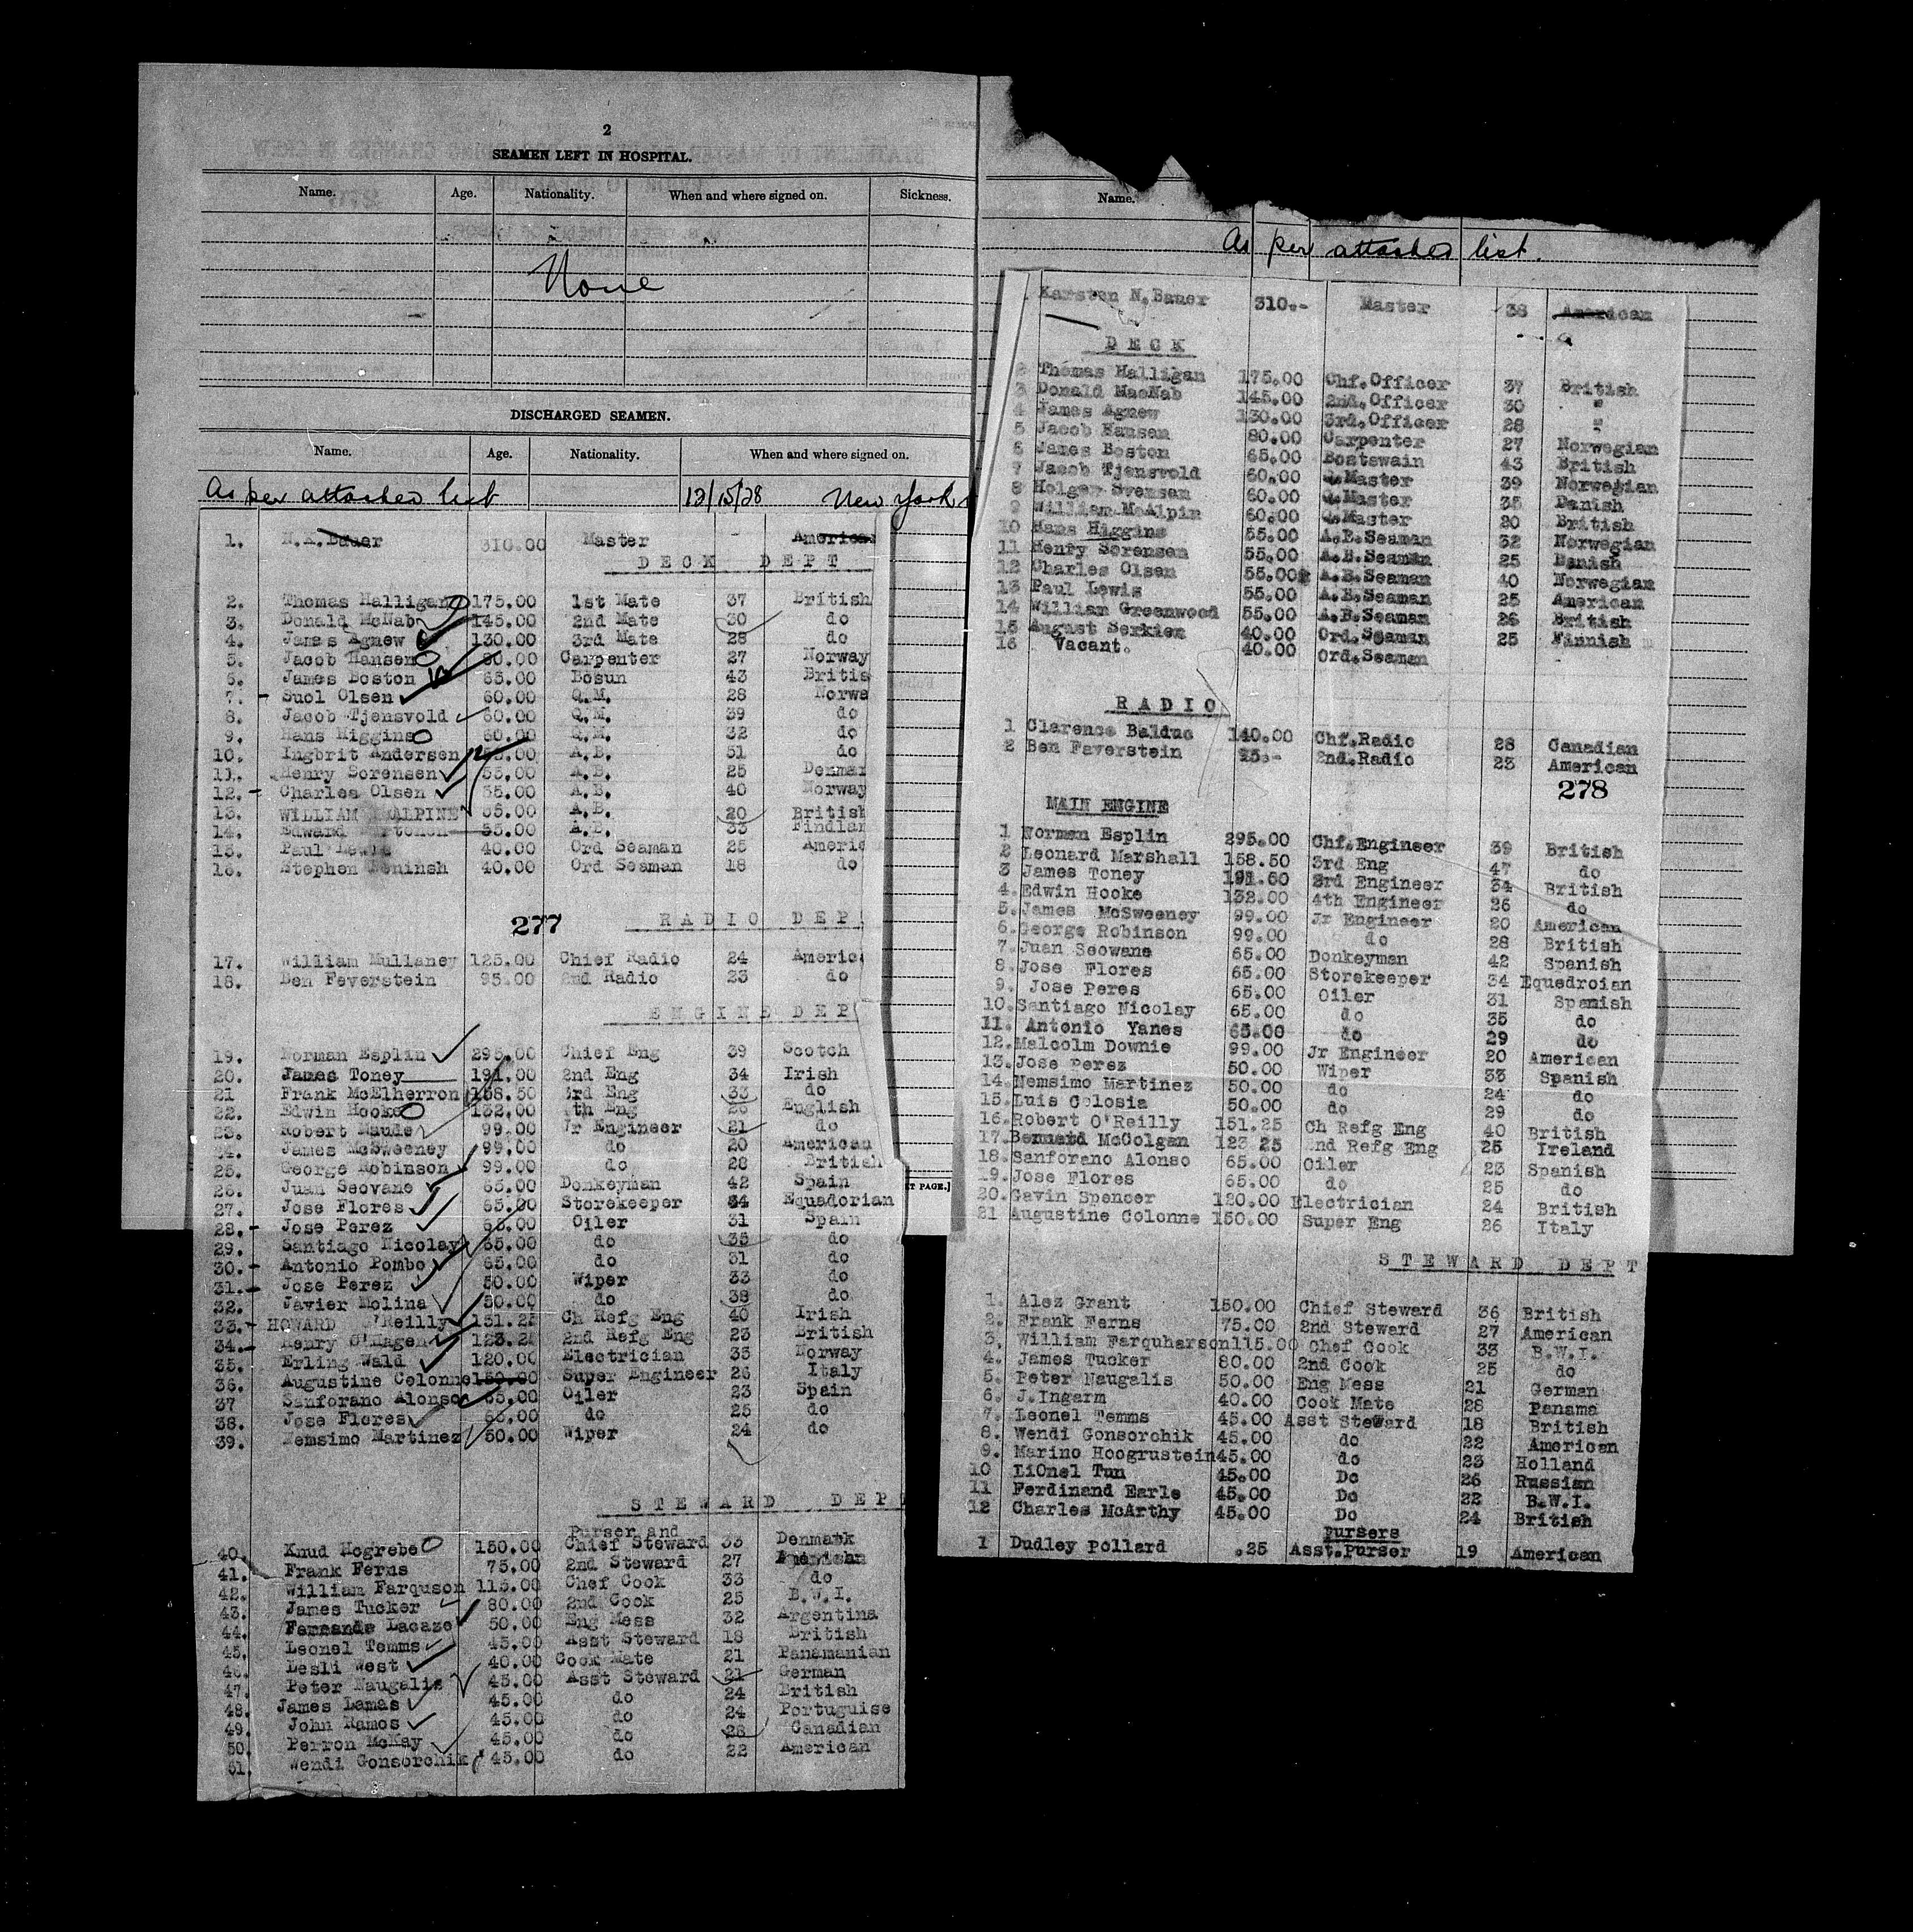 2
SEAMEN LEFT IN HOSPITAL.
Name. Age. Nationality. When and where signed on. Sickness.
None
DISCHARGED SEAMEN.
Name. Age. Nationality. When and where signed on.
As per attached list 12/15/28 New York
1. N.K.Bauer 310.00 Master American
DECK DEPT
2. Thomas Halligan 175.00 1st Mate 37 British
3. Donald McNab 145.00 2nd Mate 30 do
4. James Agnew 130.00 3rd Mate 28 do
5. Jacob Hansen 80.00 Carpenter 27 Norway
6. James Boston 65.00 Bosun 43 Britis
7. Suol Olsen 60.00 Q.M. 28 Norwa
8. Jacob Tjensvold 60.00 Q.M. 39 do
9. Hans Higgins 60.00 Q.M. 32 do
10. Ingbrit Andersen 55.00 A.B. 51 do
11. Henry Sorensen 55.00 A.B. 25 Denmar
12. Charles Olsen 55.00 A.B. 40 Norway
13. WILLIAM ALPINE 55.00 A.B. 20 British
14. Edward 55.00 A.B. 33 Findlan
15. Paul Lewis 40.00 Ord Seaman 25 Americ
16. Stephen Beninsh 40.00 Ord Seaman 18 do
277 RADIO DEP
17. William Mullaney 125.00 Chief Radio 24 Americ
18. Ben Feverstein 95.00 2nd Radio 23 do
ENGINE DEP
19. Norman Esplin 295.00 Chief Eng 39 Scotch
20. James Toney 191.00 2nd Eng 34 Irish
21 Frank McElherron 158.50 3rd Eng 33 do
22. Edwin Hooke 132.00 4th Eng 26 English
23. Robert Maude 99.00 Jr Engineer 21 do
24. James McSweeney 99.00 do 20 American
25. George Robinson 99.00 do 28 British
26. Juan Seovane 65.00 Donkeyman 42 Spain
27. Jose Flores 65.00 Storekeeper 34 Equadorian
28. Jose Perez 65.00 Oiler 31 Spain
29. Santiago Nicolay 65.00 do 35 do
30. Antonio Pombo 65.00 do 31 do
31. Jose Perez 50.00 Wiper 33 do
32. Javier Molina 50.00 do 38 do
33. HOWARD O'Reilly 151.25 Ch Refg Eng 40 Irish
34. Henry O'Hagen 123.25 2nd Refg Eng 23 British
35. Erling Wald 120.00 Electrician 35 Norway
36. Augustine Colonne 150.00 Super Engineer 26 Italy
37 Sanforano Alonso 65.00 Oiler 23 Spain
38. Jose Flores 65.00 do 25 do
39. Nemsimo Martinez 50.00 Wiper 24 do
STEWARD DEPT
Purser and
40. Knud Hogrebe 150.00 Chief Steward 33 Denmark
41. Frank Ferns 75.00 2nd Steward 27 American
42. William Farquson 115.00 Chef Cook 33 do
43. James Tucker 80.00 2nd Cook 25 B.W.I.
44. Fernando Lacaze 50.00 Eng Mess 32 Argentina
45. Leonel Temms 45.00 Asst Steward 18 British
46. Lesli West 40.00 Cook Mate 21 Panamanian
47. Peter Naugalis 45.00 Asst Steward 21 German
48. James Lamas 45.00 do 24 British
49. John Ramos 45.00 do 24 Portuguise
50. Perron McKay 45.00 do 28 Canadian
51. Wendi Gonsorchik 45.00 do 22 American
Name.
As per attached list.
Karsten N.Bauer 310.- Master 38 American
DECK
2 Thomas Halligan 175.00 Chf.Officer 37 British
3 Donald MacNab 145.00 2nd.Officer 30 "
4 James Agnew 130.00 3rd.Officer 28 "
5 Jacob Hansen 80.00 Carpenter 27 Norwegian
6 James Boston 65.00 Boatswain 43 British
7 Jacob Tjensvold 60.00 Q.Master 39 Norwegian
8 Holger Svensen 60.00 Q.Master 35 Danish
9 William McAlpin 60.00 Q.Master 20 British
10 Hans Higgins 55.00 A.B.Seaman 32 Norwegian
11 Henry Sorensen 55.00 A.B.Seaman 25 Danish
12 Charles Olsen 55.00 A.B.Seaman 40 Norwegian
13 Paul Lewis 55.00 A.B.Seaman 25 American
14 William Greenwood 55.00 A.B.Seaman 26 British
15 August Serkien 40.00 Ord.Seaman 25 Finnish
16 Vacant. 40.00 Ord.Seaman
RADIO
1 Clarence Balduc 140.00 Chf.Radio 28 Canadian
2 Ben Faverstein 25.- 2nd.Radio 23 American
278
MAIN ENGINE
1 Norman Esplin 295.00 Chf.Engineer 39 British
2 Leonard Marshall 158.50 3rd Eng 47 do
3 James Toney 191.50 2rd Engineer 34 British
4. Edwin Hooke 132.00 4th Engineer 26 do
5. James McSweeney 99.00 Jr Engineer 20 American
6. George Robinson 99.00 do 28 British
7. Juan Seowane 65.00 Donkeyman 42 Spanish
8. Jose Flores 65.00 Storekeeper 34 Equedroian
9. Jose Peres 65.00 Oiler 31 Spanish
10. Santiago Nicolay 65.00 do 35 do
11. Antonio Yanes 65.00 do 29 do
12. Malcolm Downie 99.00 Jr Engineer 20 American
13. Jose Perez 50.00 Wiper 33 Spanish
14. Nemsimo Martinez 50.00 do 24 do
15. Luis Colosia 50.00 do 29 do
16. Robert O'Reilly 151.25 Ch Refg Eng 40 British
17. Bernard McColgan 123 25 2nd Refg Eng 25 Ireland
18. Sanforano Alonso 65.00 Oiler 23 Spanish
19. Jose Flores 65.00 do 25 do
20. Gavin Spencer 120.00 Electrician 24 British
21 Augustine Colonne 150.00 Super Eng 26 Italy
STEWARD DEPT
1. Alez Grant 150.00 Chief Steward 36 British
2. Frank Ferns 75.00 2nd Steward 27 American
3. William Farquharson 115.00 Chef Cook 33 B.W.I.
4. James Tucker 80.00 2nd Cook 25 do
5. Peter Naugalis 50.00 Eng Mess 21 German
6. J.Ingarm 40.00 Cook Mate 28 Panama
7. Leonel Temms 45.00 Asst Steward 18 British
8. Wendi Gonsorchik 45.00 do 22 American
9. Marino Hoogrustein 45.00 do 23 Holland
10 LiOnel Tun 45.00 Do 26 Russian
11 Ferdinand Earle 45.00 Do 22 B.W.I.
12 Charles McArthy 45.00 Do 24 British
Pursers
1 Dudley pollard .25 Asst.Purser 19 American
ET PAGE.]